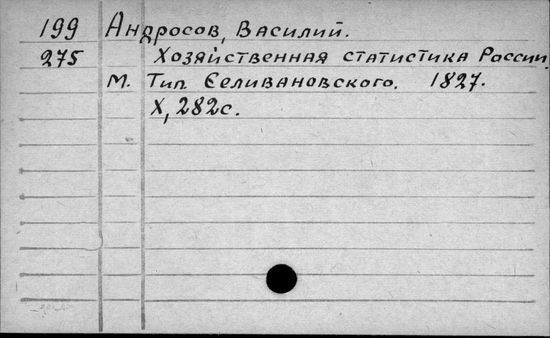 199 Андросов, Василий.
275 Хозяйственная статистика России.
М. Тип. Селивановского. 1827.
X, 282с.